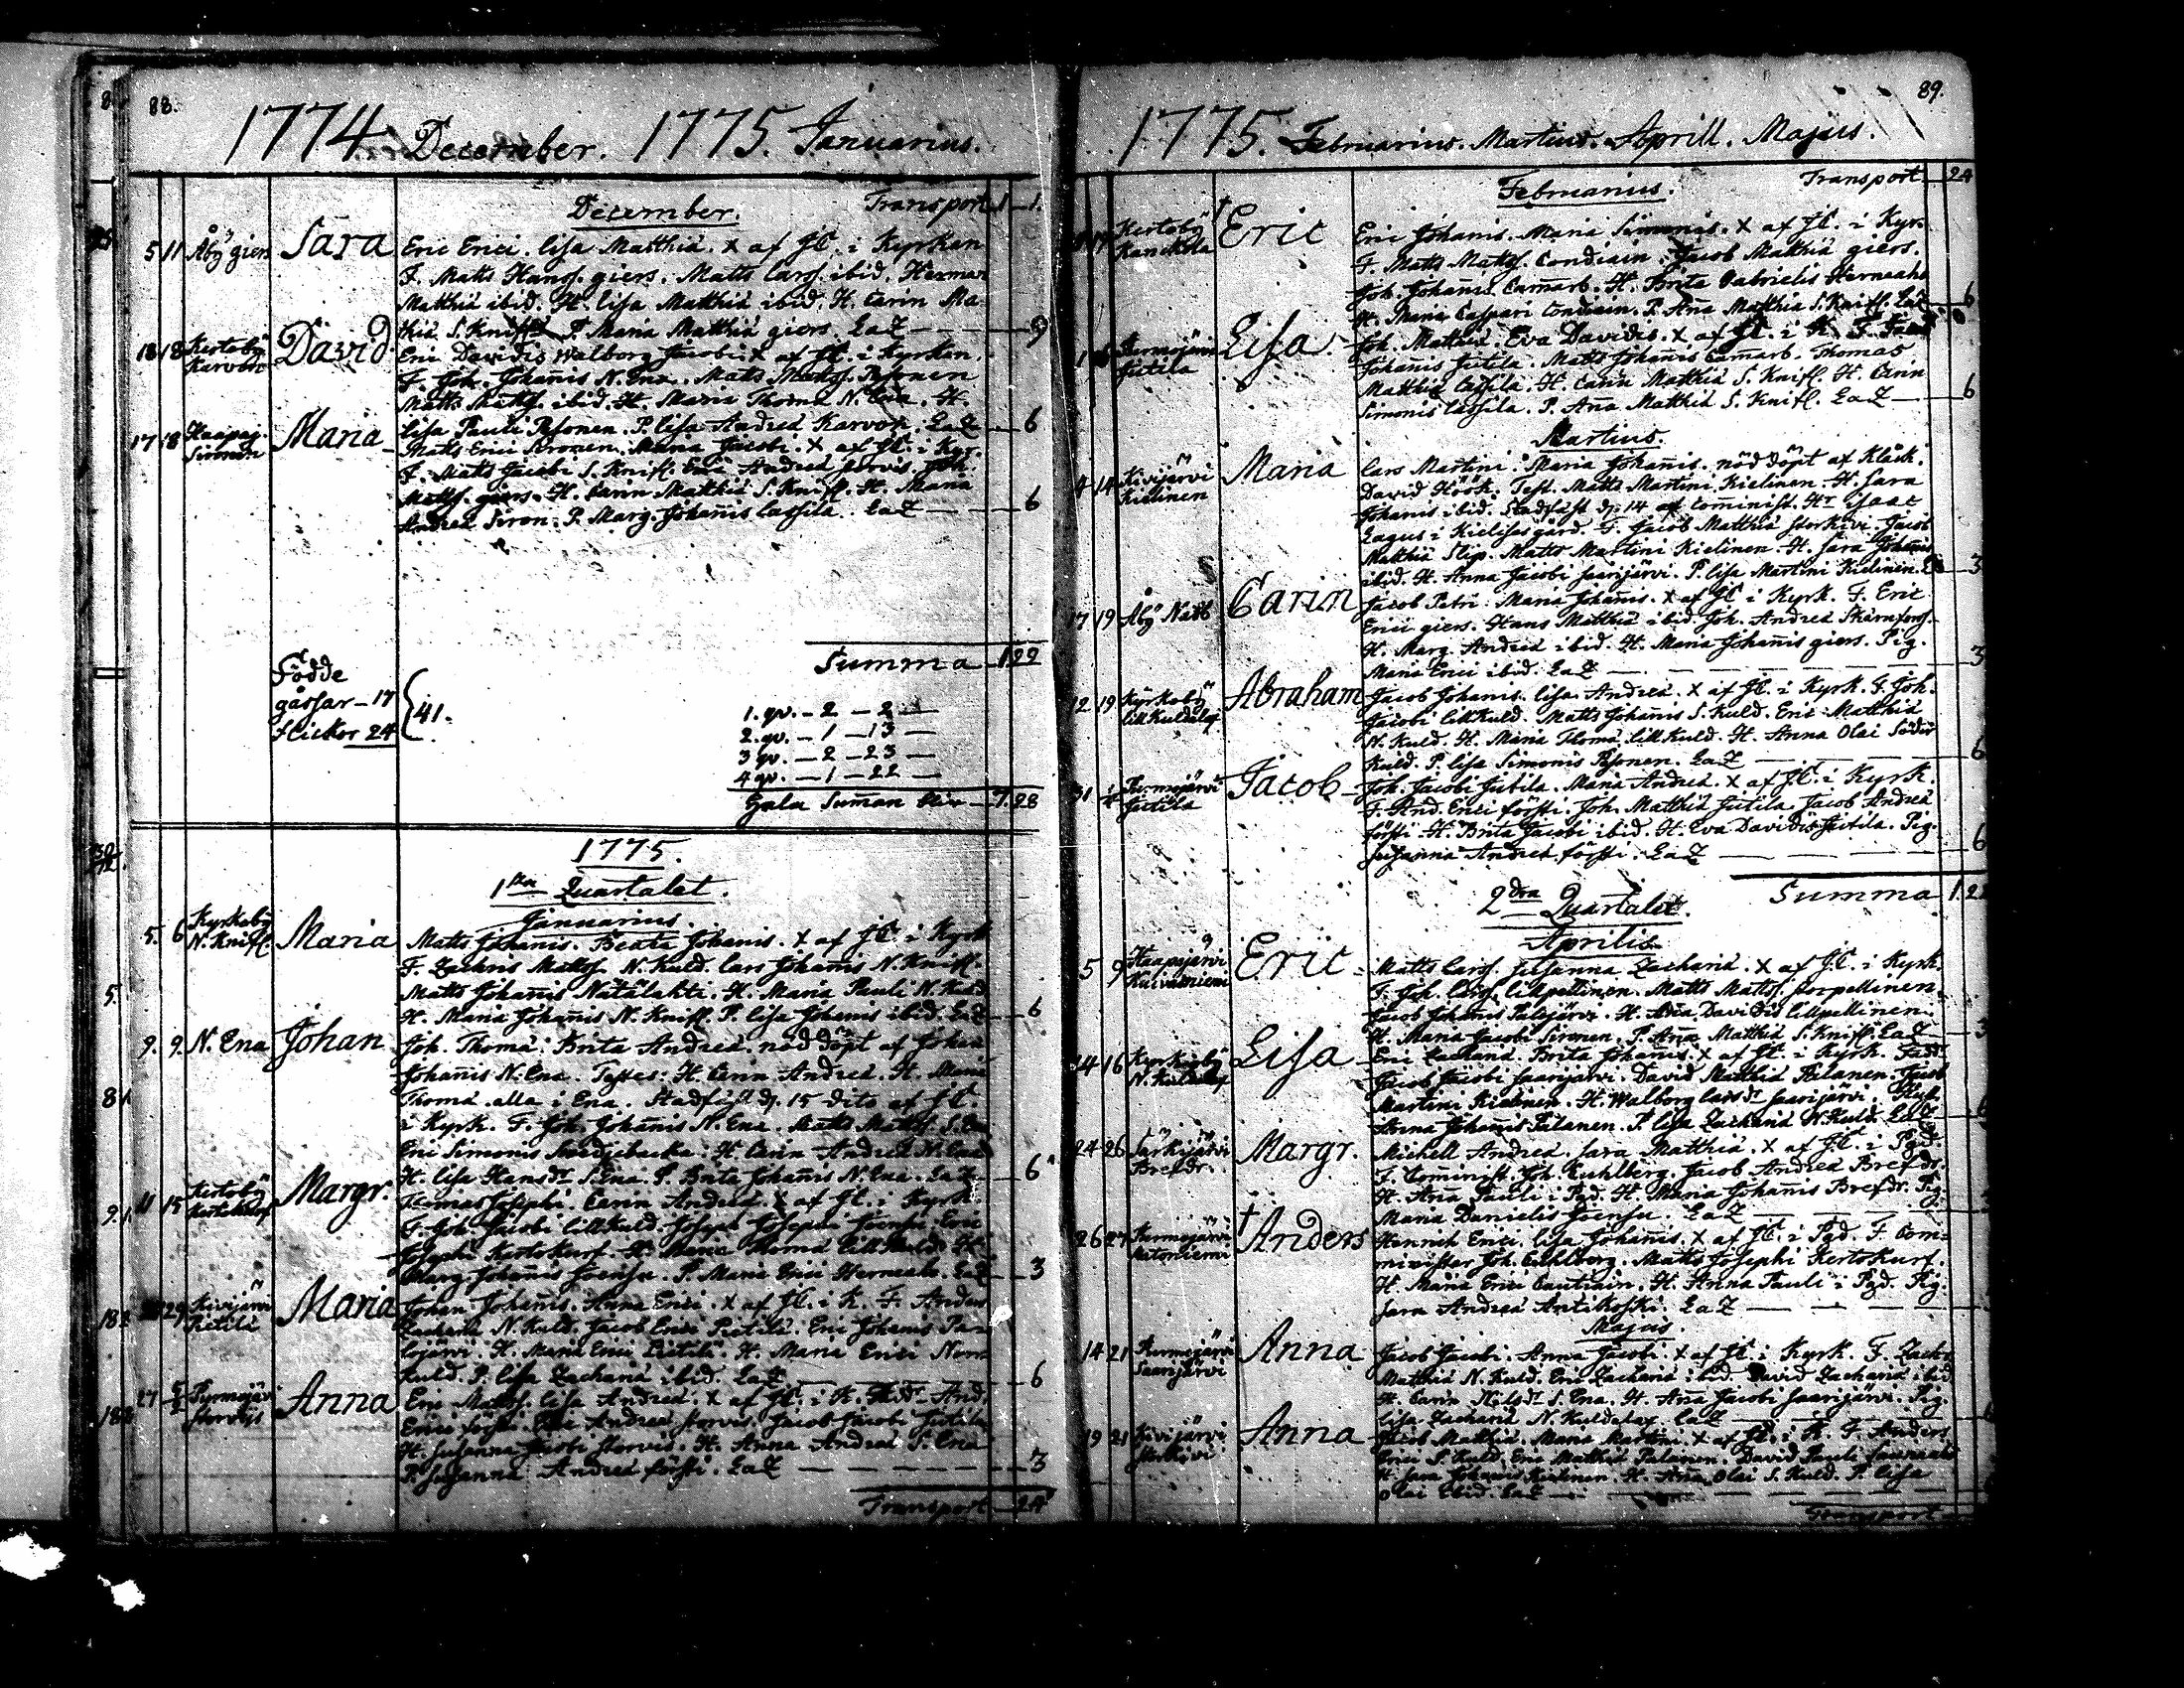 88.
1774 December. 1775. Januarius.
December. Transport 1 1.
5 11 Åby giers Sara Eric Erici. Lisa Matthiæ. X af JC. i Kyrkan
F. Matts Hanss. giers. Matts Larss. ibid. Herman
Matthiæ ibid. H. Lisa Matthiæ ibid. H. Carin Ma-
thiæ S. Knifl. P. Maria Matthiæ giers. EaZ — 9
18 18 Kertoby Karvon David Eric Davidis Walborg Jacobi. X af JC. i Kyrkan.
F. Joh. Johañis N. Ena. Matts Matss. Pesonen
Matts Matss. ibid. H. Maria Thomæ N. Ena. H.
Lisa Pauli Pesonen. P. Lisa Andreæ Karvon. EaZ — 6
17 18 Haapaj. Sironen Maria Matts Erici Sironen. Maria Jacobi. X af JC. i Kyr.
F. Matts Jacobi S. Knifl. Eric Andreæ storvis. Joh.
Matss. giers. H. Carin Matthiæ S. Knifl. H. Maria
Andreæ Siron. P. Marg. Johañis Lassila. EaZ — 6
Summa 1 22
Födde
gåssar — 17
flickor 24 } 41.
1. qv. — 2 — 2 —
2. qv. — 1 — 13 —
3 qv. — 2 — 23 —
4 qv. — 1 — 22 —
Hela Suman blir — 7. 28
1775.
1sta Quartalet.
Januarius.
5. 6 Kyrkoby N. Knifl. Maria Matts Johanis. Beata Johanis. X af JC. i Kyrk
F. Zachris Matss. N. Kuld. Lars Johañis N. Knifl.
Matts Johañis Natälahti. H. Maria Pauli N. Kuld
H. Maria Johañis N. Knifl. P. Lisa Johanis ibid. EaZ — 6
9. 9. N. Ena Johan Joh. Thomæ. Brita Andreæ. nöd döpt af Johan
Johañis N. Ena. Testes: H. Carin Andreæ. H. Maria
Thomæ. alla i Ena. Stadfäst d. 15 dito af JC.
i Kyrk. F. Joh. Johañis N. Ena. Matts Matss. S. Ena
Eric Simonis Svedjebacka. H. Carin Andreæ N. Ena
H. Lisa Hansdr S. Ena. P. Brita Johañis N. Ena. EaZ — 6
11 15 Kertoby Kertokurf Margr. Thomas Josephi. Carin Andreæ X af JC. i Kyrk.
F. Joh. Jacobi Lillkuld. Joseph Josephi Joensu. Eric
Josephi Kertokurf. H. Maria Thomæ Lillkuld. H.
Marg. Johañis Joensu. P. Maria Erici Herneaho. EaZ — 3
29 Kivijärvi Pietilä Maria Johan Johañis. Anna Erici. X af JC. i K. F. Anders
Zachariæ N. Kuld. Jacob Erici Pietilä. Eric Johanis Pa-
lojärvi. H. Maria Erici Pietilä. H. Maria Erici Norr-
kuld. P. Lisa Zachariæ ibid. EaZ — 6
27 5/2 Purmojärvi storvis Anna Eric Matss. Lisa Andreæ. X af JC. i K. Fadr And.
Erici försti. Eric Andreæ storvis. Jacob Jacobi Jutila
H. Susanna Jacobi storvis. H. Anna Andreæ S. Ena
P. Susanna Andreæ försti. EaZ — 3
Transport — 24
89.
1775. Februarius. Martius. Aprill. Majus.
Februarius. Transport 24
Kertoby Kanckola † Eric Eric Johanis. Maria Simonis. X af JC. i Kyr.
F. Matts Matss. Condiain. Jacob Matthiæ giers.
Joh. Johanis Camarb. H. Brita Gabrielis Herneaho
H. Maria Caspari Condiain. P. Aña Matthiæ S. Knifl. EaZ — 6
Purmojärvi Jutila Lisa Joh. Matthiæ. Eva Davidis. X af JC. i K. F. Jacob
Johañis Jutila. Matts Johanis Camarb. Thomas
Matthiæ Lassila. H. Carin Matthiæ S. Knifl. H. Carin
Simonis Lassila. P. Aña Matthiæ S. Knifl. EaZ — 6
Martius.
4 14 Kivijärvi Kielinen Maria Lars Martini. Maria Johañis. nöd döpt af Klåck.
David Höök. Test. Matts Martini Kielinen. H. Sara
Johanis ibid. Stadfäst d. 14 af Cominist. Hr Isaac
Lagus i Kielisas gård. F. Jacob Matthiæ storkivi. Jacob
Matthiæ Slip. Matts Martini Kielinen. H. Sara Johañis
ibid. H. Anna Jacobi Saarijärvi. P. Lisa Martini Kielinen. — 3
17 19 Åby Nabb Carin Jacob Petri. Maria Johañis. X af JC i Kyrk. F. Eric
Erici giers. Hans Matthiæ ibid. Joh. Andreæ
H. Marg. Andreæ ibid. H. Maria Johanis giers. Pig.
Maria Erici ibid. EaZ — 3
12 19 Kyrkoby Lillkuldalaf Abraham Jacob Johanis. Lisa Andreæ. X af JC. i Kyrk. F. Joh.
Jacobi Lillkuld. Matts Johañis S. Kuld. Eric Matthiæ
N. Kuld. H. Maria Thomæ Lillkuld. H. Anna Olai Söder
kuld. P. Lisa Simonis Pesonen. EaZ — 6
31 Purmojärvi Jutila Jacob Joh. Jacobi Jutila. Maria Andreæ. X af JC. i Kyrk.
F. And. Erici försti. Joh. Matthiæ Jutila. Jacob Andreæ
försti. H. Brita Jacobi ibid. H. Eva Davidis Jutila. Pig.
Susanna Andreæ försti. EaZ — 6
2dra Quartalet. Summa 1.
Aprilis
5 9 Haapajärvi Kuivasniemi Eric Matts Larss. Susanna Zachariæ. X af JC. i Kyrk.
F. Joh. Larss. Lillpellinen. Matts Matss. storpellinen.
Jacob Johanis Palojärvi. H. Aña Davidis Lillpellinen.
H. Maria Jacobi Sironen. P. Aña Matthiæ S. Knifl. EaZ — 3
14 16 Kyrkoby N. Kuldalaf Lisa Eric Zachariæ. Brita Johanis. X af JC. i Kyrk. Fadr
Jacob Jacobi Saarijärvi. David Matthiæ Palanen. Jacob
Martini Kielinen. H. Walborg Larsdr Saarijärvi.
Anna Johanis Palanen. P. Lisa Zachariæ N. Kuld. EaZ
24 26 Särkijärvi Brefdr. Margr. Michell Andreæ. Sara Matthiæ. X af JC. i Pgd.
F. Cominist. Joh. Cuhlberg. Jacob Andreæ Brefdr.
H. Aña Pauli i Pgd. H. Maria Johañis Brefdr. Pig.
Maria Danielis Joensu. EaZ —
26 27 Purmojärvi † Anders Henrich Erici. Lisa Johañis. X af JC. i Pgd. F. Com-
minister Joh. Cuhlberg. Matts Josephi Kertokurf.
H. Maria Erici Cautiain. H. Anna Pauli i Pgd. Pig.
Sara Andreæ Antikoski. EaZ —
Majus.
14 21 Purmojärvi Saarijärvi Anna Jacob Jacobi. Anna Jacobi. X af JC i Kyrk. F. Zachr.
Matthiæ N. Kuld. Eric Zachariæ ibid. David Zachariæ ibid
H. Carin Nilsdr S. Ena. H. Aña Jacobi Saarijärvi. Pig.
Lisa Zachariæ N. Kuldalax. EaZ —
19 21 Kivijärvi storkivi Anna Jacob Matthiæ. Maria Martini. X af JC. i K. F. Anders
Erici S. Kuld. Eric Matthiæ Palanen. David Pauli
H. Sara Johanis Kielinen. H. Aña Olai S. Kuld. P. Lisa
Olai ibid. EaZ —
Transport